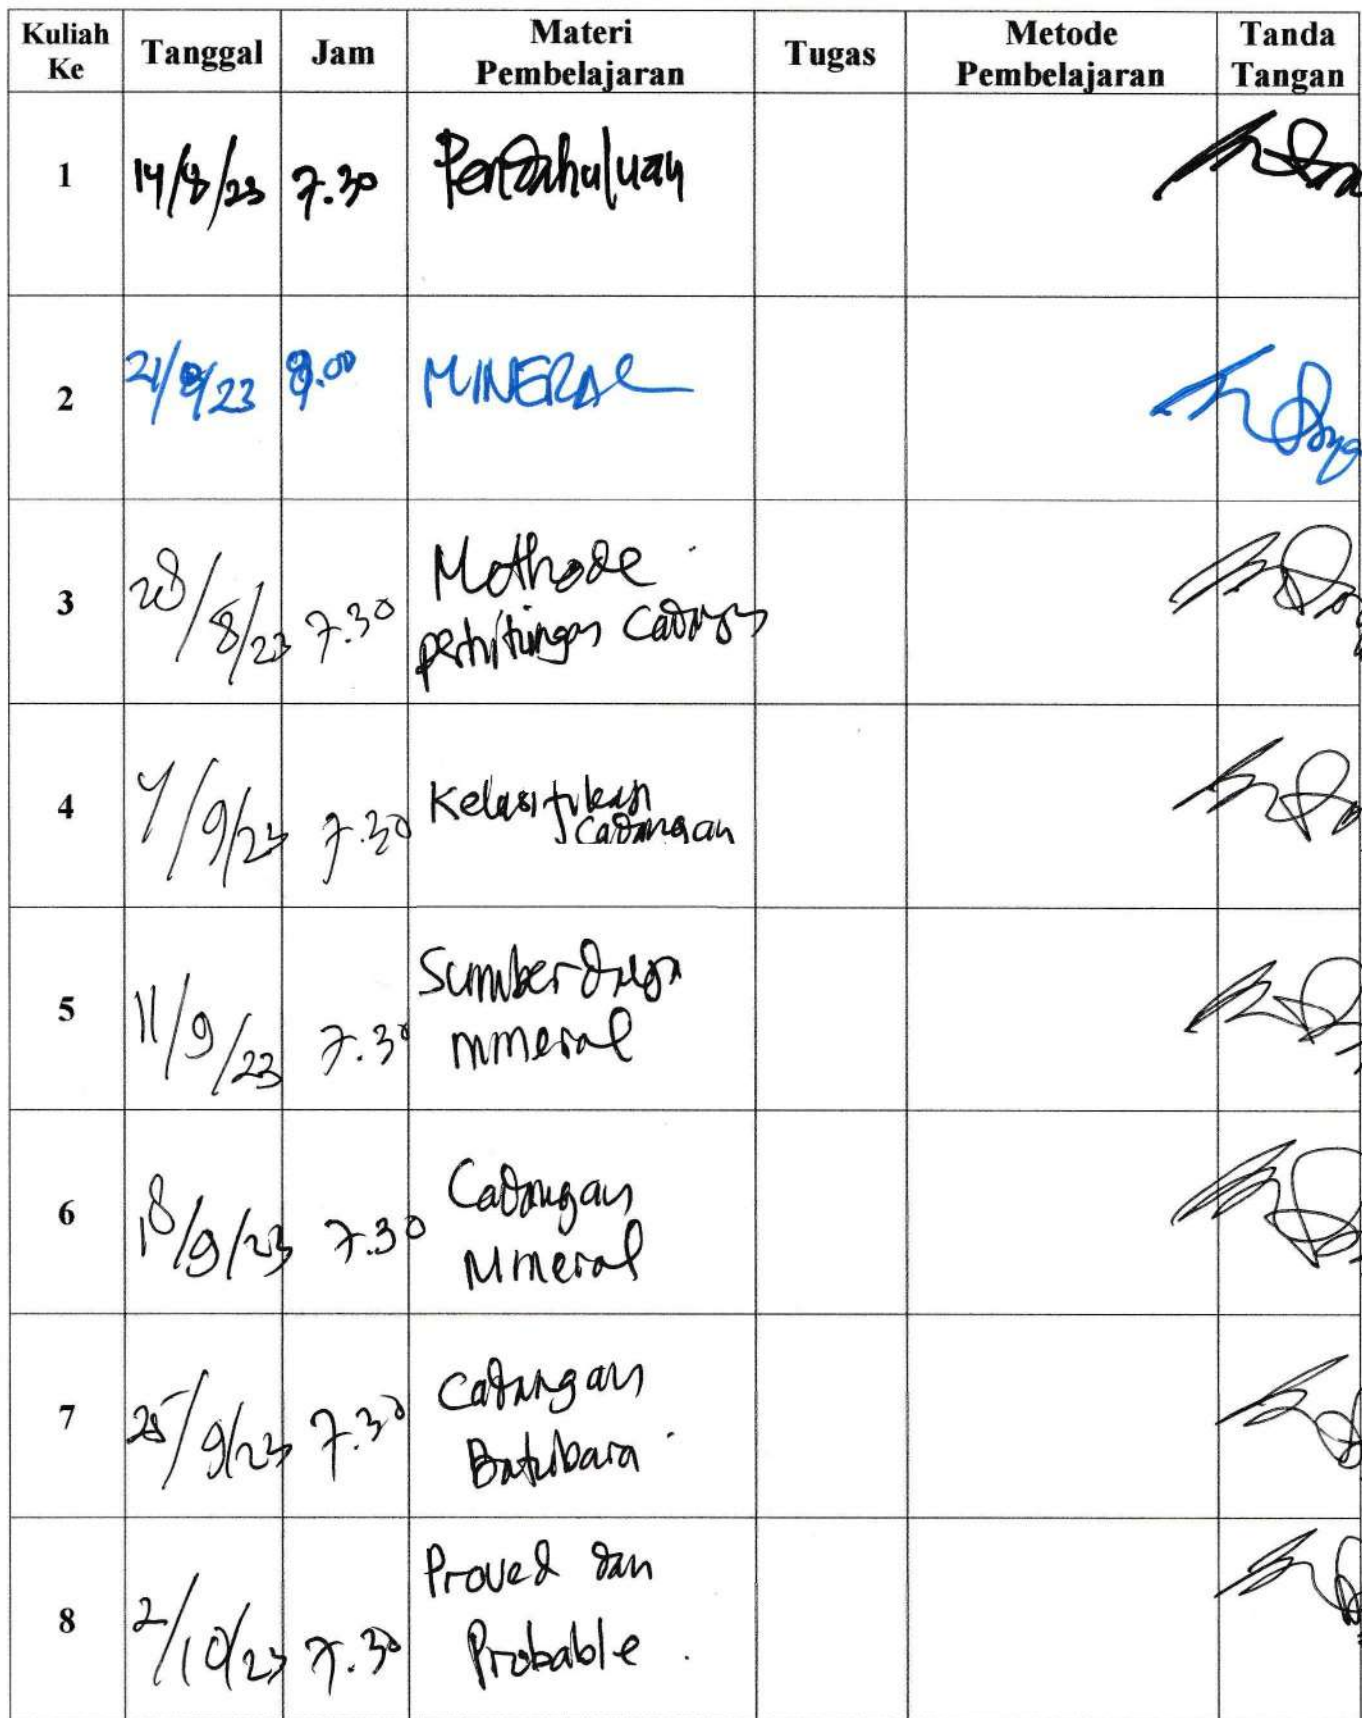 Kuliah Ke Tanggal Jam Materi Pembelajaran Tugas Metode Pembelajaran Tanda Tangan
1 14/8/23 7.30 Pendahuluan
2 21/8/23 MINERAL
3 28/8/23 7.30 Methode
perhitungan Cadangan
4 /9/23 7.30 Kelasifikasi
Cadangan
5 11/9/23 7.30 Sumber daya
mineral
6 18/9/23 7.30 Cadangan
Mineral
7 25/9/23 7.30 Cadangan
Batubara
8 2/10/23 7.30 Proved dan
Probable